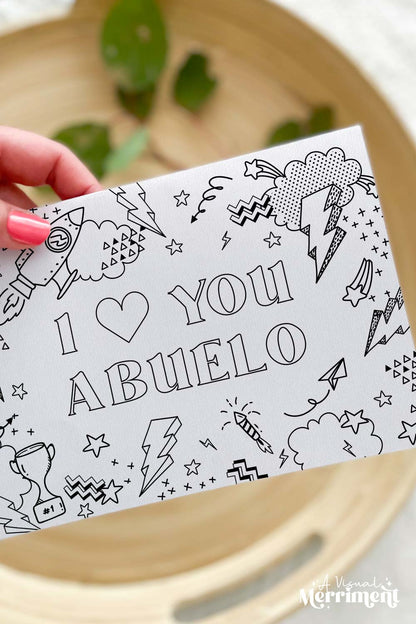 I ♡ YOU
ABUELO
#1
A Visual
Merriment